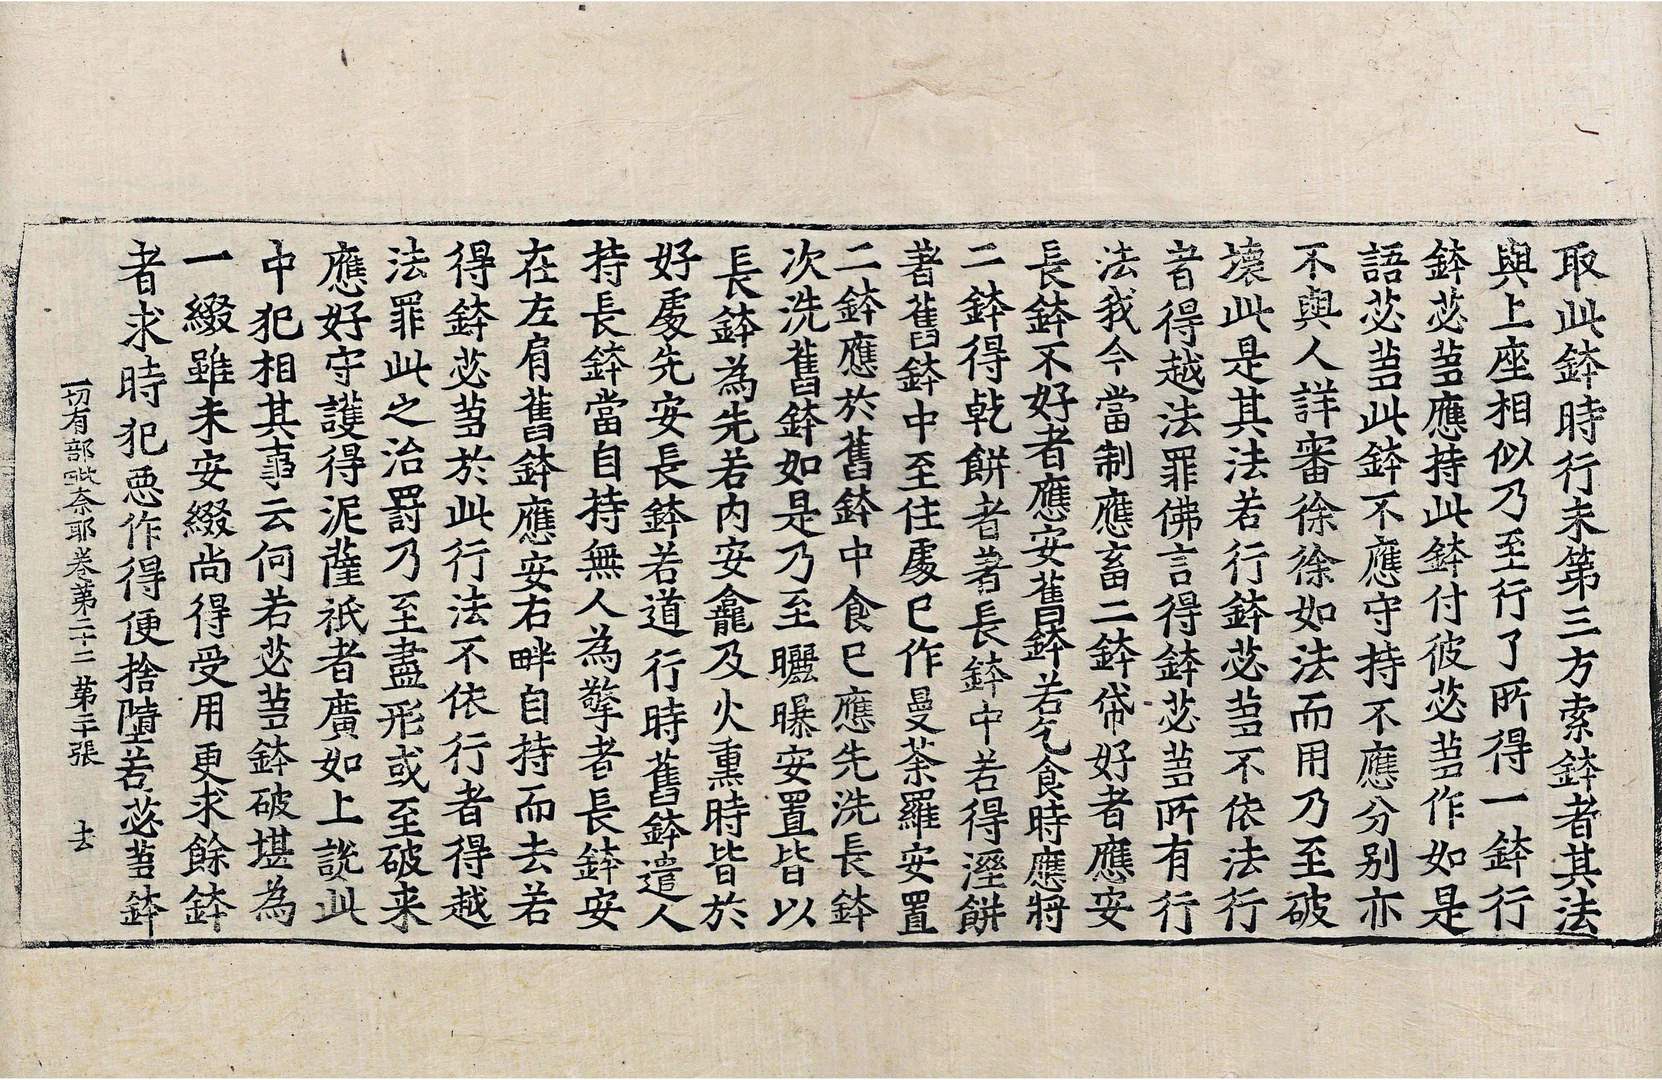 取此鉢時行末第三方索鉢者其法
與上座相似乃至行了所得一鉢行
鉢苾芻應持此鉢付彼苾芻作如是
語苾芻此鉢不應守持不應分别亦
不與人詳審徐徐如法而用乃至破
壞此是其法若行鉢苾芻不依法行
者得越法罪佛言得鉢苾芻所有行
法我今當制應畜二鉢帒好者應安
長鉢不好者應安舊鉢若乞食時應將
二鉢得乾餅者著長鉢中若得溼餅
著舊鉢中至住處已作曼荼羅安置
二鉢應於舊鉢中食已應先洗長鉢
次洗舊鉢如是乃至曬曝安置皆以
長鉢為先若内安龕及火熏時皆於
好處先安長鉢若道行時舊鉢遣人
持長鉢當自持無人為擎者長鉢安
在左肩舊鉢應安右畔自持而去若
得鉢苾芻於此行法不依行者得越
法罪此之治罸乃至盡形或至破来
應好守護得泥薩祇者廣如上說此
中犯相其事云何若苾芻鉢破堪為
一綴雖未安綴尚得受用更求餘鉢
者求時犯惡作得便捨墮若苾芻鉢
一切有部毗奈耶卷第二十二 第二十張 去